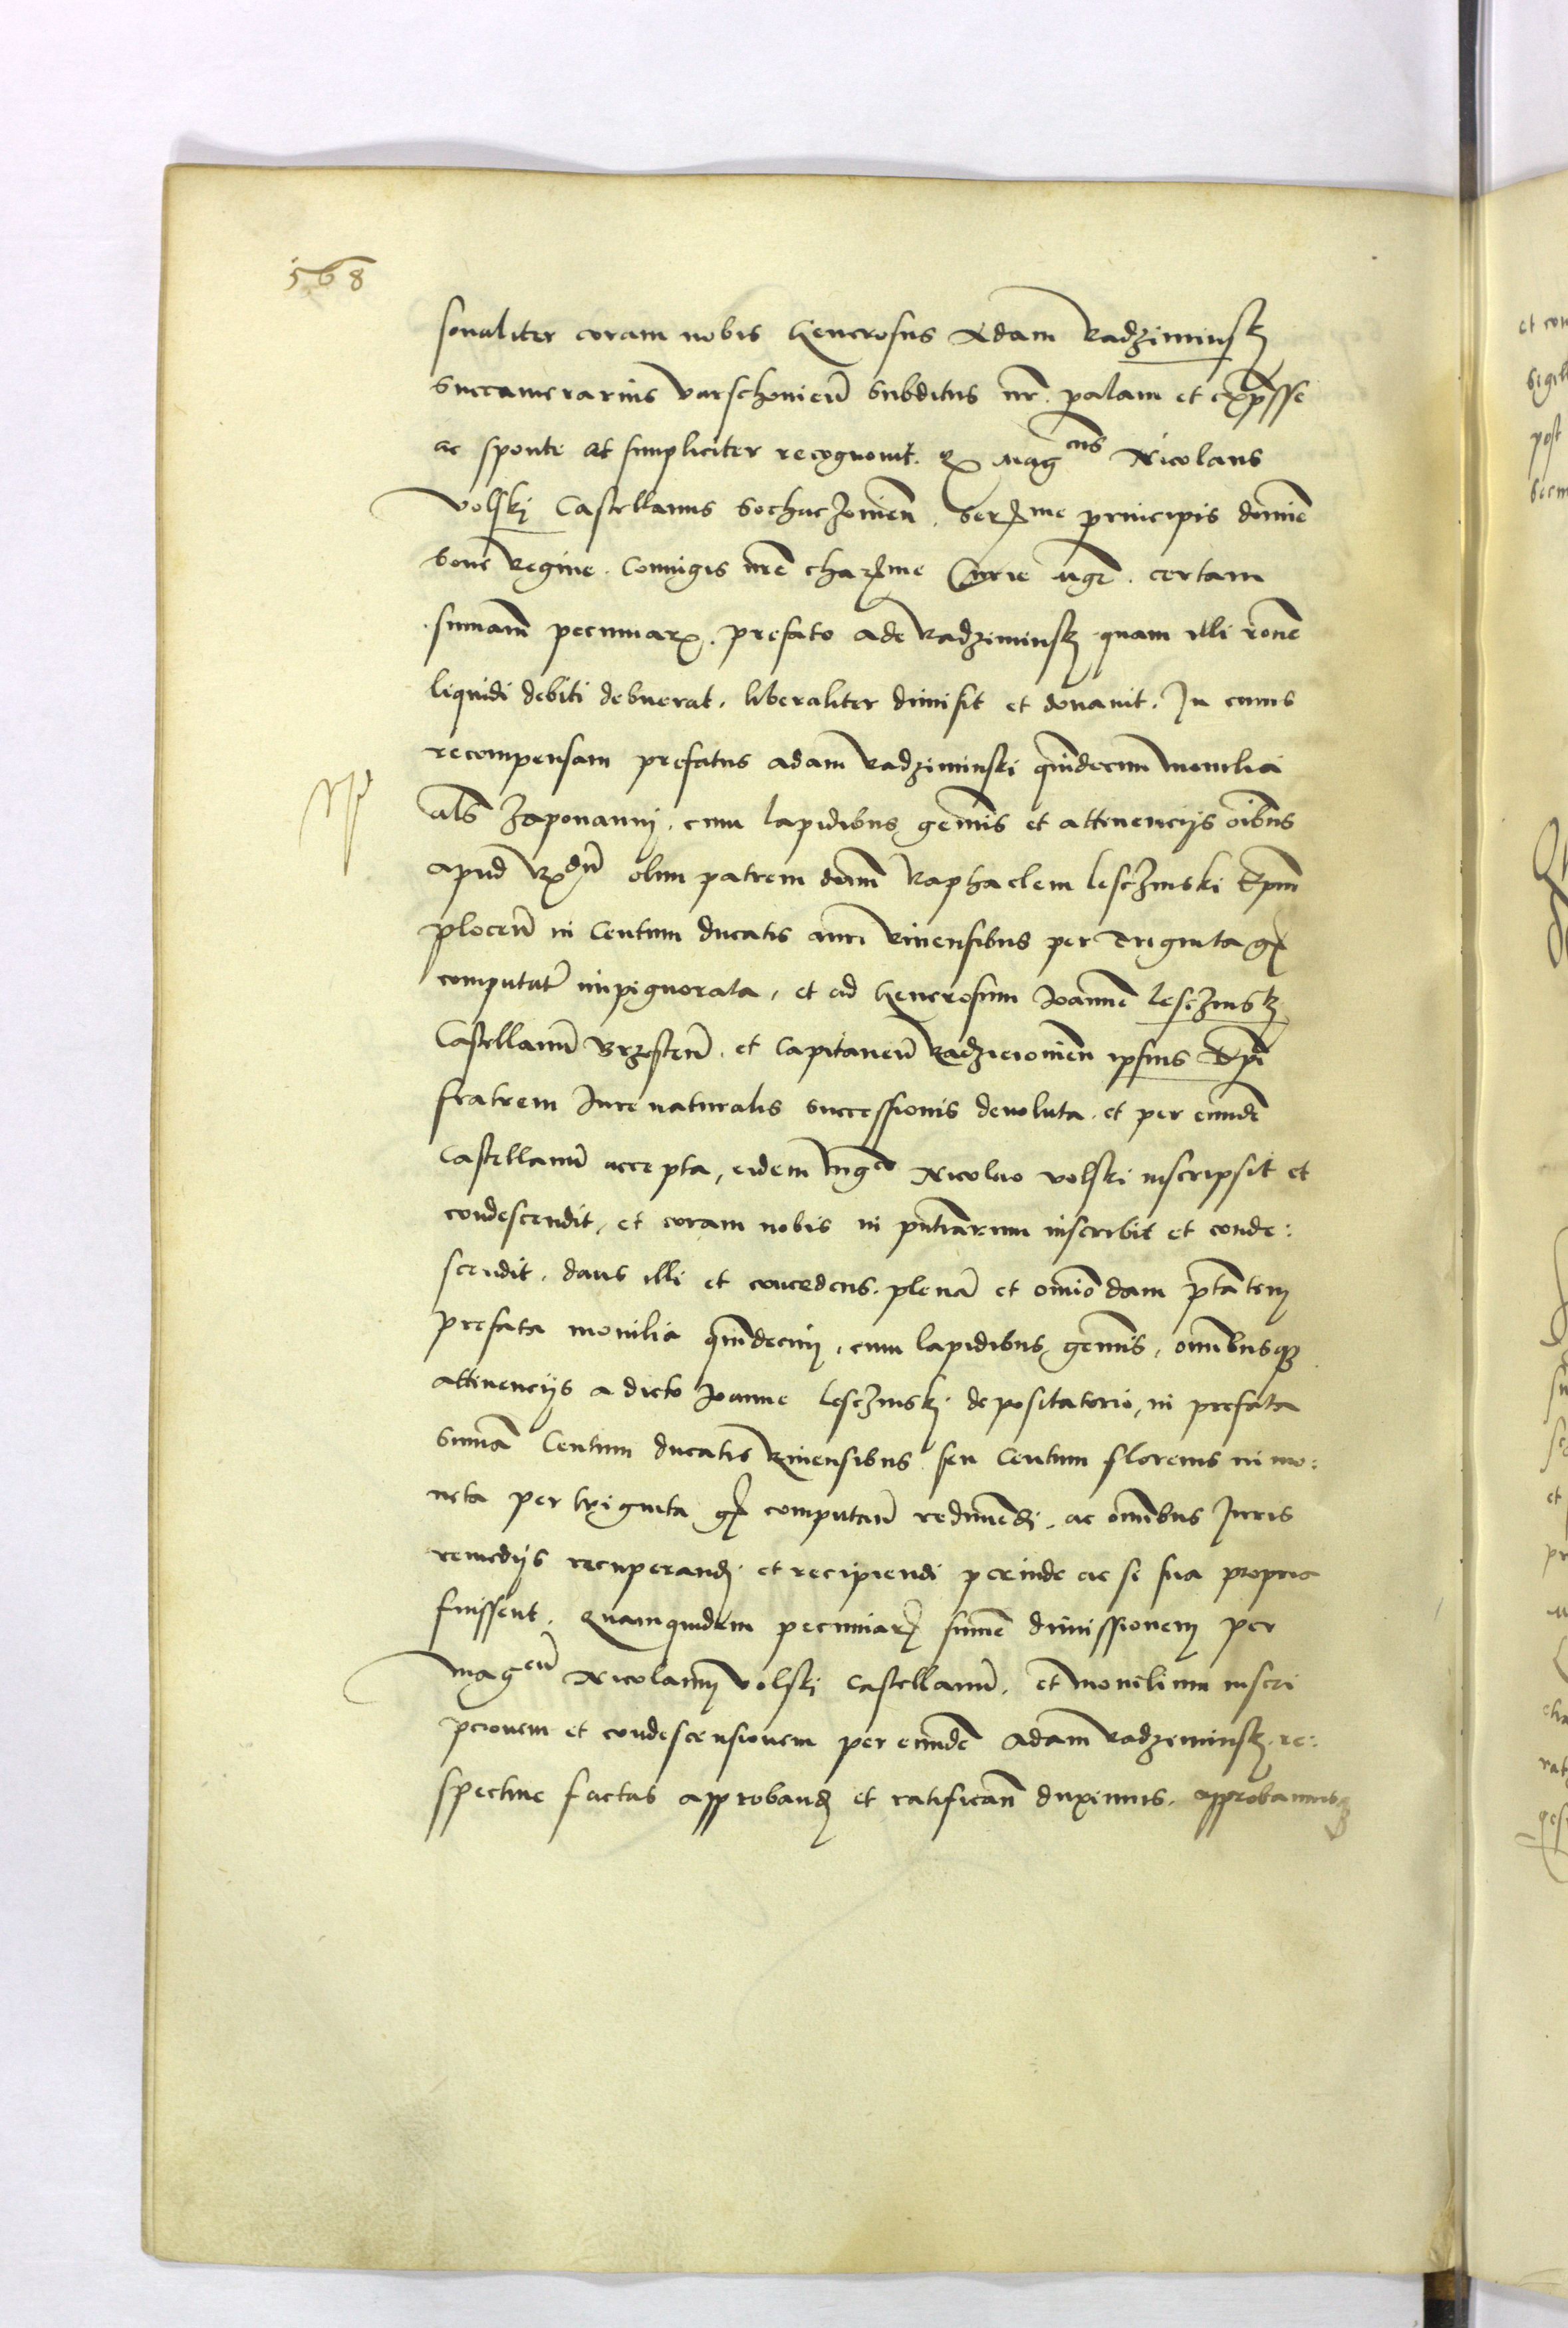 568
sonaliter coram nobis Generosus Adam Radziminskj
succamerarius varschovień subditus nr̄. palam et exp̄sse
ac sponte et simpliciter recognovit. qꝫ Magcus Nicolaus
Volskj Castellanus Sochaczovień. Serꝫme principis dominē
bone Regine. Coniugis nr̄e charꝫme Curie mgr̄. certam
sum̄am pecuniarꝫ. prefato ade Radziminskj quam illi ronē
liquidi debiti debuerat. liberaliter dimisit et donavit. In cuius
recompensam prefatus adam̄ Radziminski quīdecim monilia
als̄ Zaponanny. cum lapidibus gem̄is et attinencijs oībus
apud Rꝫdū olim patrem dom̄ Raphaelem lesczinski Ep̄m
plocen̄ in Centum ducatis auri Rinensibus per triginta gꝫ
computat̄ impignorata, et ad Generosum Joannē lesczinskj
Castellanū Brzesten̄. et Capitaneū Radzieiovień ipsius Ep̄i
fratrem Iure naturalis successionis devoluta. et per eundē
Castellanū accepta, eidem mgco Nicolao volski inscripsit et
condescendit, et coram nobis in pn̄tiarum inscribit et conde:
scendit. dans illi et concedens. plenā et omīodam p̄tātem
prefata monilia quīdecim, cum lapidibus gem̄is, om̄ibusqꝫ
attinencijs a dicto Joanne lesczinskj depositatorio, in prefata
sum̄a Centum ducatis Rinensibus seu Centum florenis in mo:
neta per triginta gꝫ computan̄ redimendi. ac om̄ibus Iuris
remedijs recuperandj et recipiendi perinde ac si sua propria
fuissent. Quamquidem pecuniarꝫ sum̄e dimissionem per
Magcū Nicolaum volski Castellanū. et monilium inscri
pcionem et condescensionem per eundē Adam̄ Radziminskj. re:
spective factas approbandj et ratifican̄ duximus. approbamusqꝫ